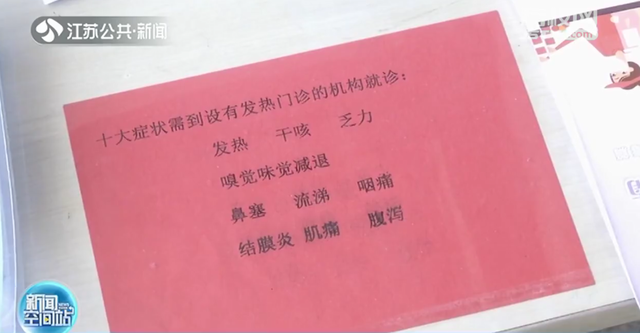 江苏公共·新闻
十大症状需到设有发热门诊的机构就诊：
发热 干咳 乏力
嗅觉味觉减退
鼻塞 流涕 咽痛
结膜炎 肌痛 腹泻
新闻
空间站